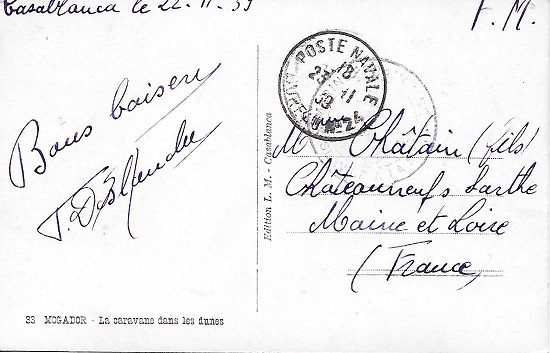 Casablanca le 22-11-39
F. M.
Bons baisers
POSTE NAVALE
18
23 11
39
N° 24
Edition L. M. - Casablanca
Mr Châtain (fils)
Châteauneuf s/ Sarthe
Maine et Loire
(France)
33 MOGADOR - La caravane dans les dunes